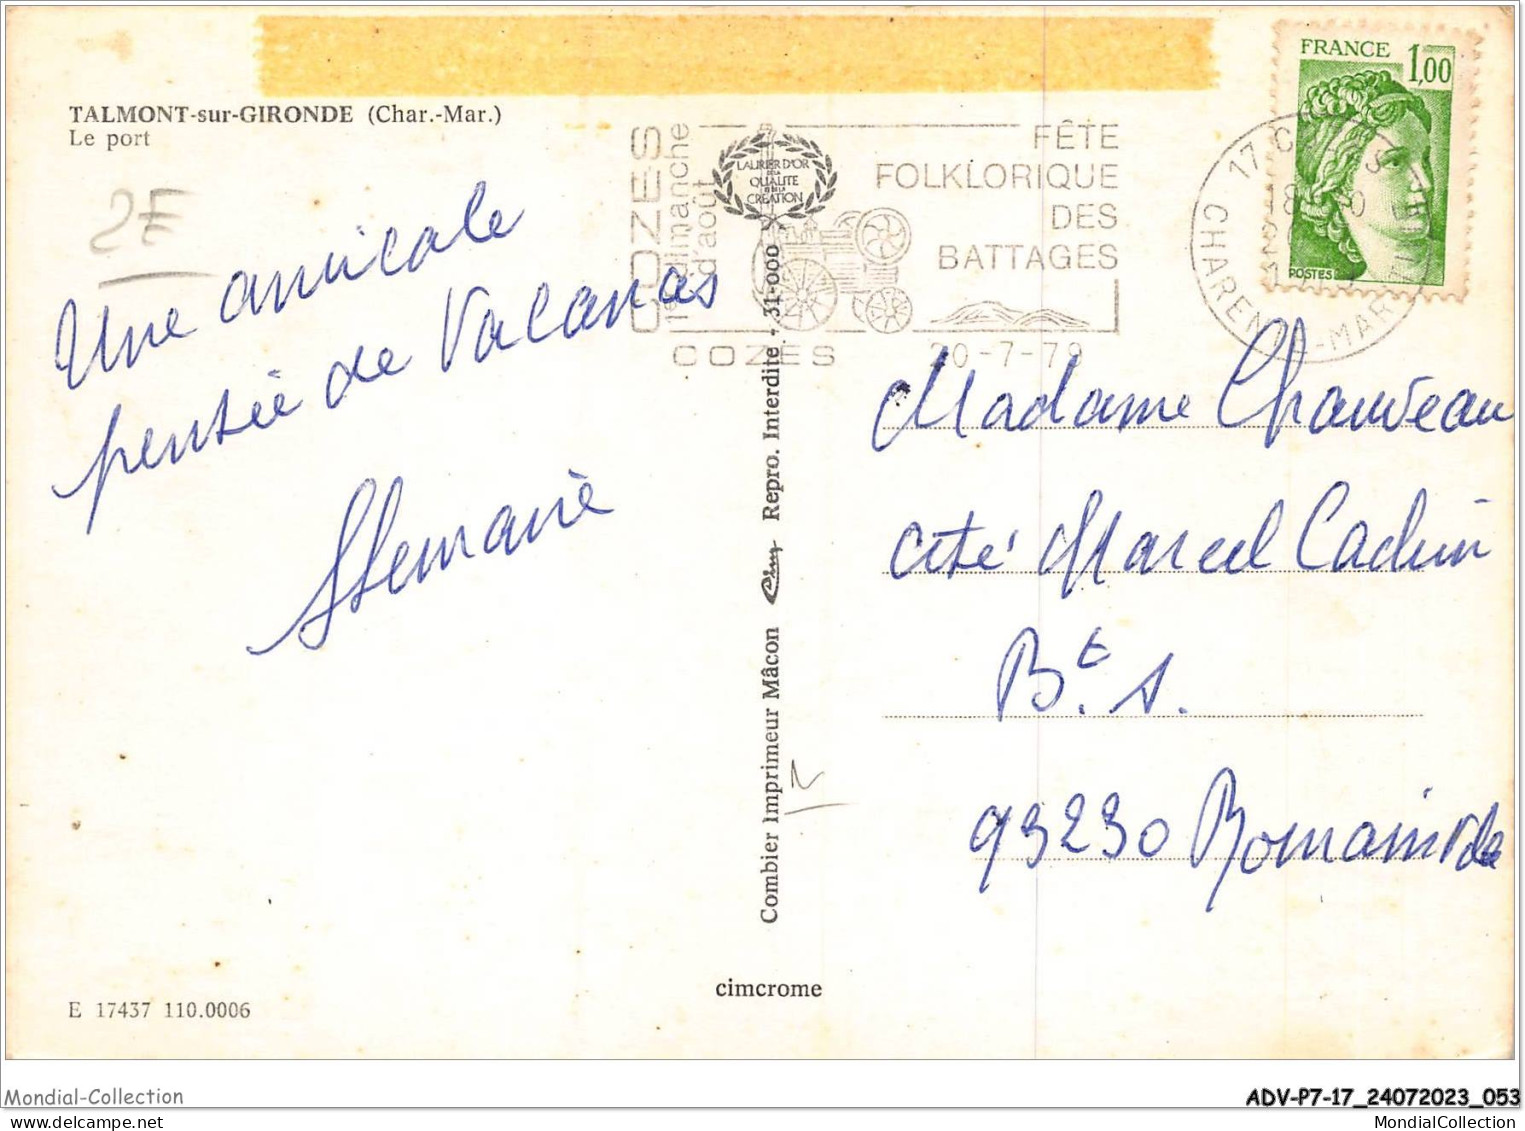 TALMONT-sur-GIRONDE (Char.-Mar.)
Le port
2E
Une amicale
pensée de Vacances
COZES
dimanche
d'août
LAURIER D'OR
DE LA
QUALITE
ET DE LA
CREATION
FÊTE
FOLKLORIQUE
DES
BATTAGES
COZES
20-7-79
FRANCE 1,00
POSTES
17
CHARENTE-MARITIME
Madame Chauveau
cité Marcel Cachin
Bt. A.
93230 Romainville
Combier Imprimeur Mâcon Cim Repro. Interdite - 31-000
cimcrome
E 17437 110.0006
Mondial-Collection
ADV-P7-17_24072023_053
MondialCollection